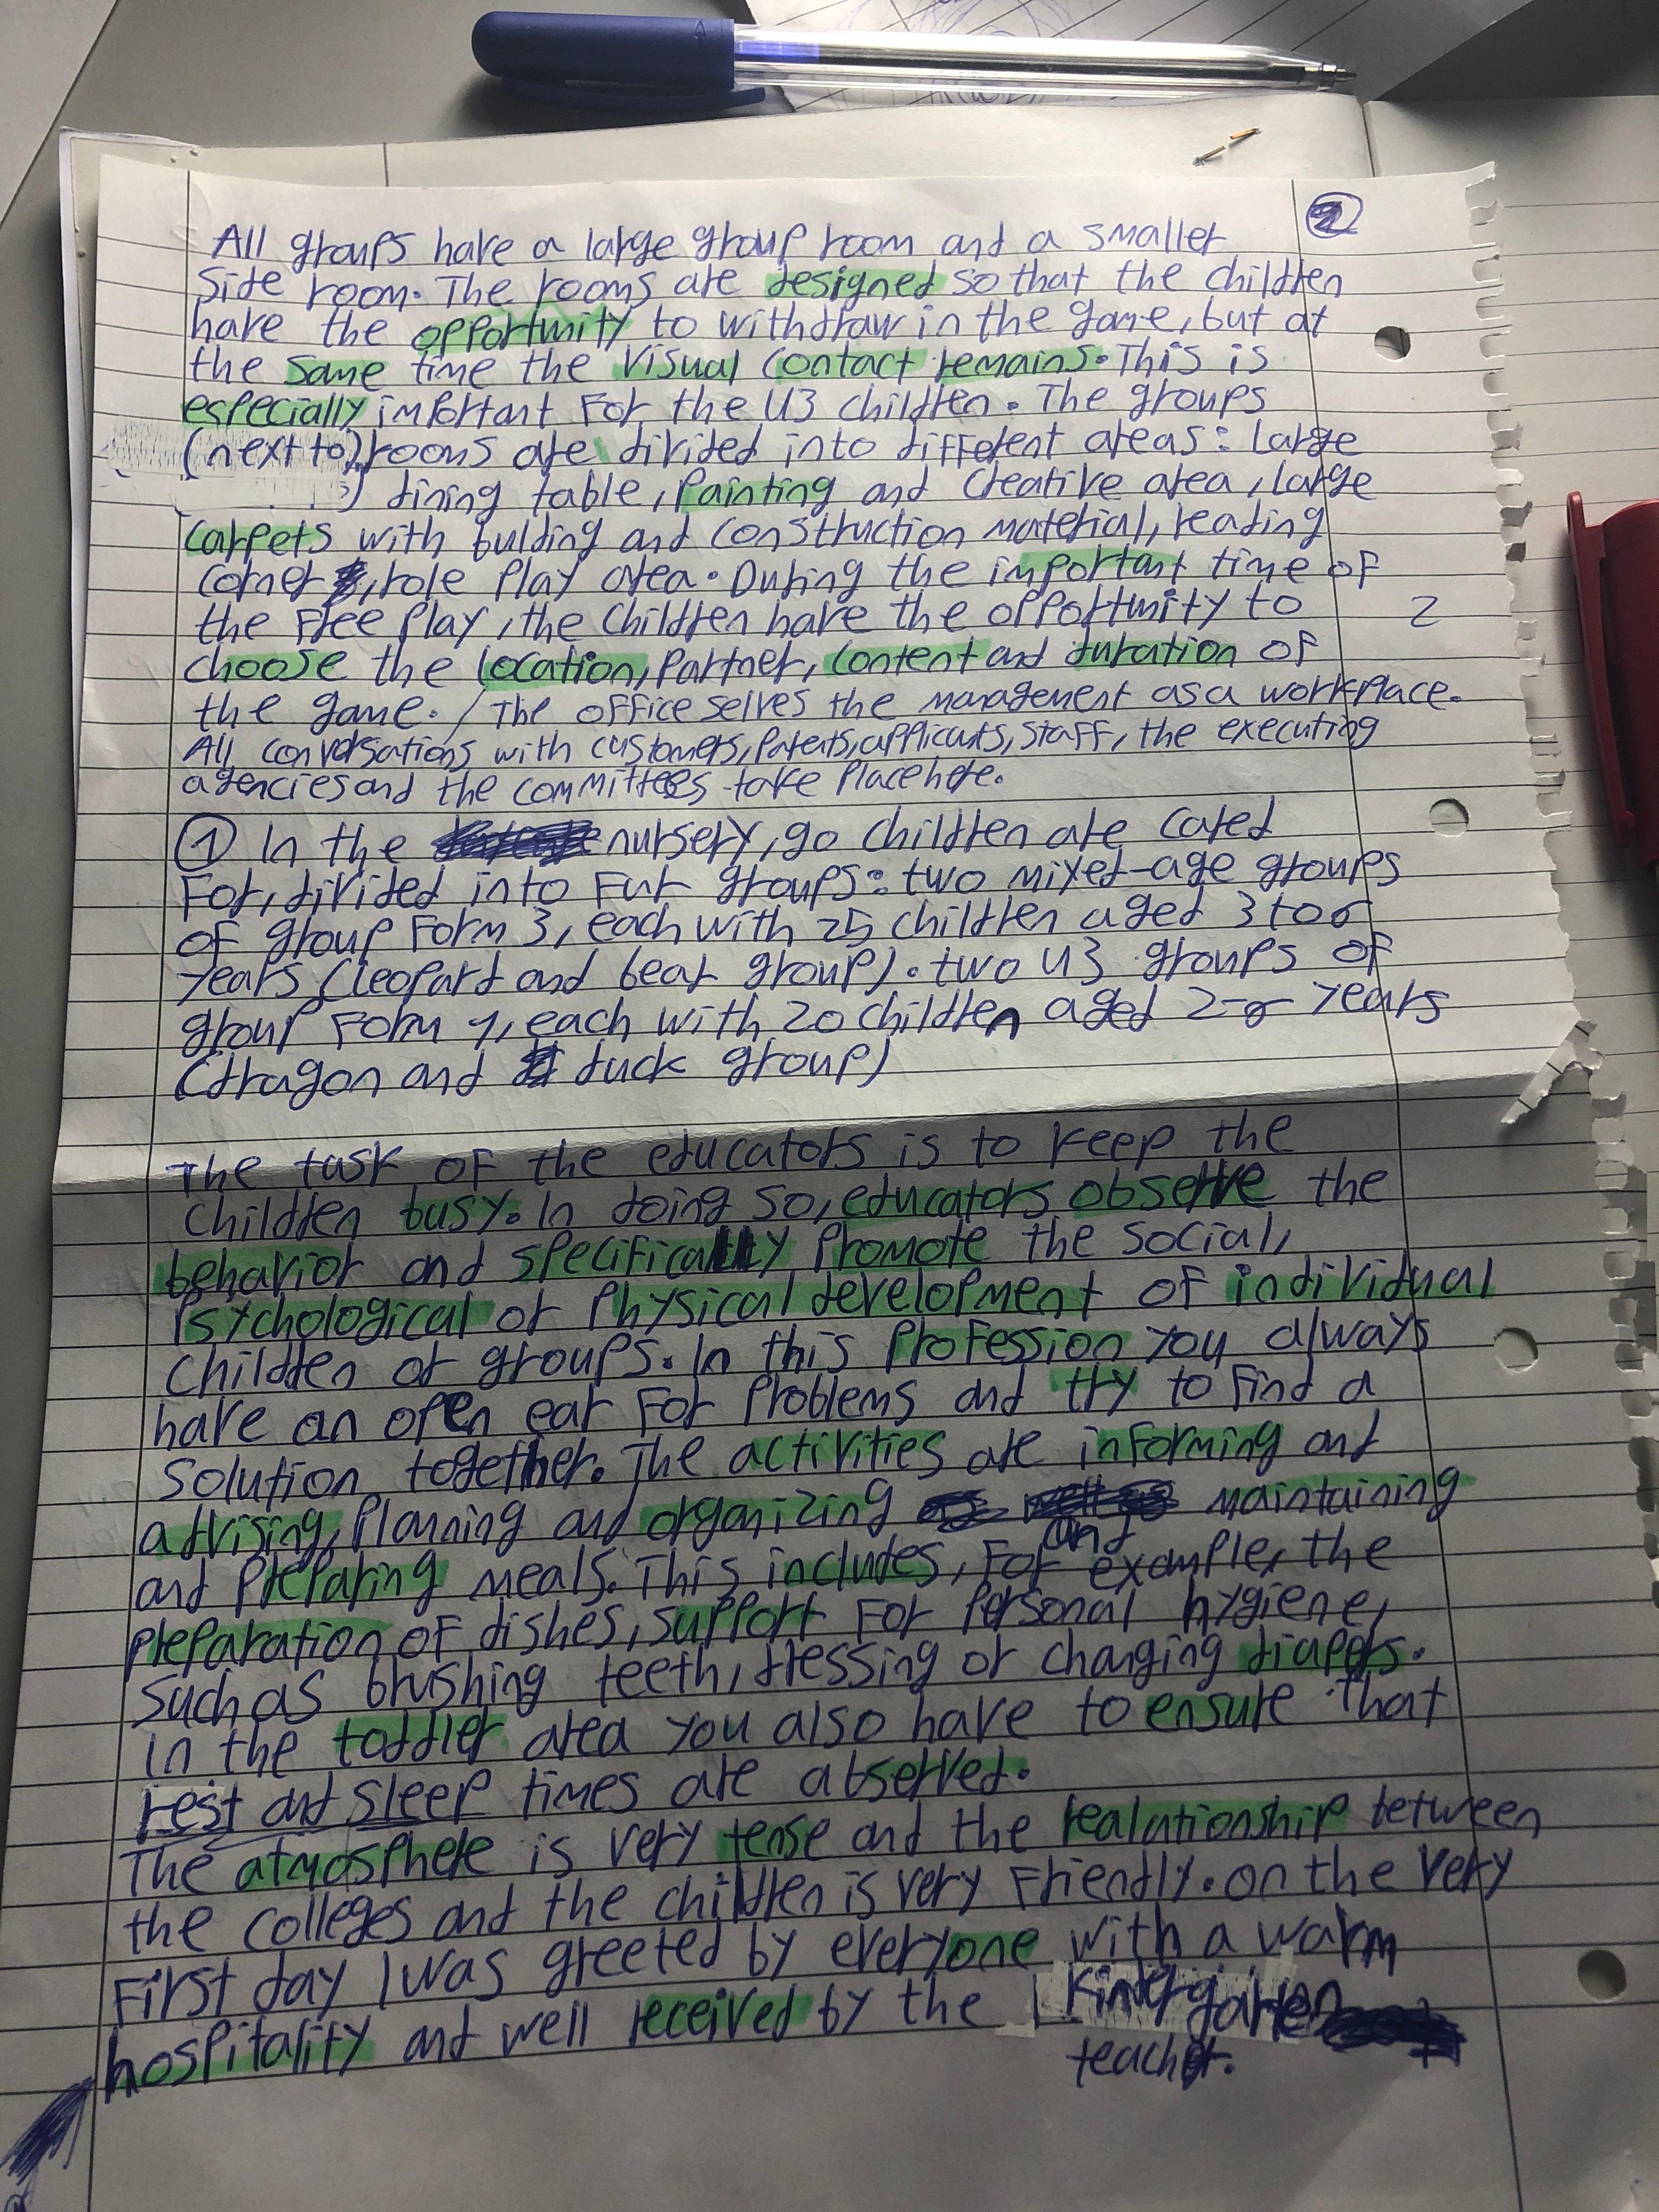 2
All groups have a large group room and a smaller
side room. The rooms are designed so that the children
have the opportunity to withdraw in the game, but at
the same time the visual contact remains. This is
especially important for the U3 children. The groups
(next to) rooms are divided into different areas: large
) dining table, painting and creative area, large
carpets with bulding and construction material, reading
corner, role play area. During the important time of
the free play, the children have the opportunity to
2
choose the location, partner, content and duration of
the game. / The office selves the management as a workplace.
All conversations with customers, parents, applicants, staff, the executing
agencies and the committees take place here.
① In the nursery, 90 children are cared
for, divided into fur groups: two mixed-age groups
of group form 3, each with 25 children aged 3 to 6
years (leopard and bear group). two U3 groups of
group form 1, each with 20 children aged 2-6 years
(dragon and duck group)
The task of the educators is to keep the
children busy. In doing so, educators observe the
behavior and specifically promote the social,
psychological or physical development of individual
children or groups. In this profession you always
have an open ear for problems and try to find a
solution together. The activities are informing and
advising, planning and organizing maintaining
and
and preparing meals. This includes, for example, the
preparation of dishes, support for personal hygiene,
such as brushing teeth, dressing or changing diapers.
in the toddler area you also have to ensure that
rest and sleep times are observed.
The atmosphere is very tense and the realationship between
the colleges and the children is very friendly. on the very
first day I was greeted by everyone with a warm
hospitality and well received by the kindergarten
teacher.